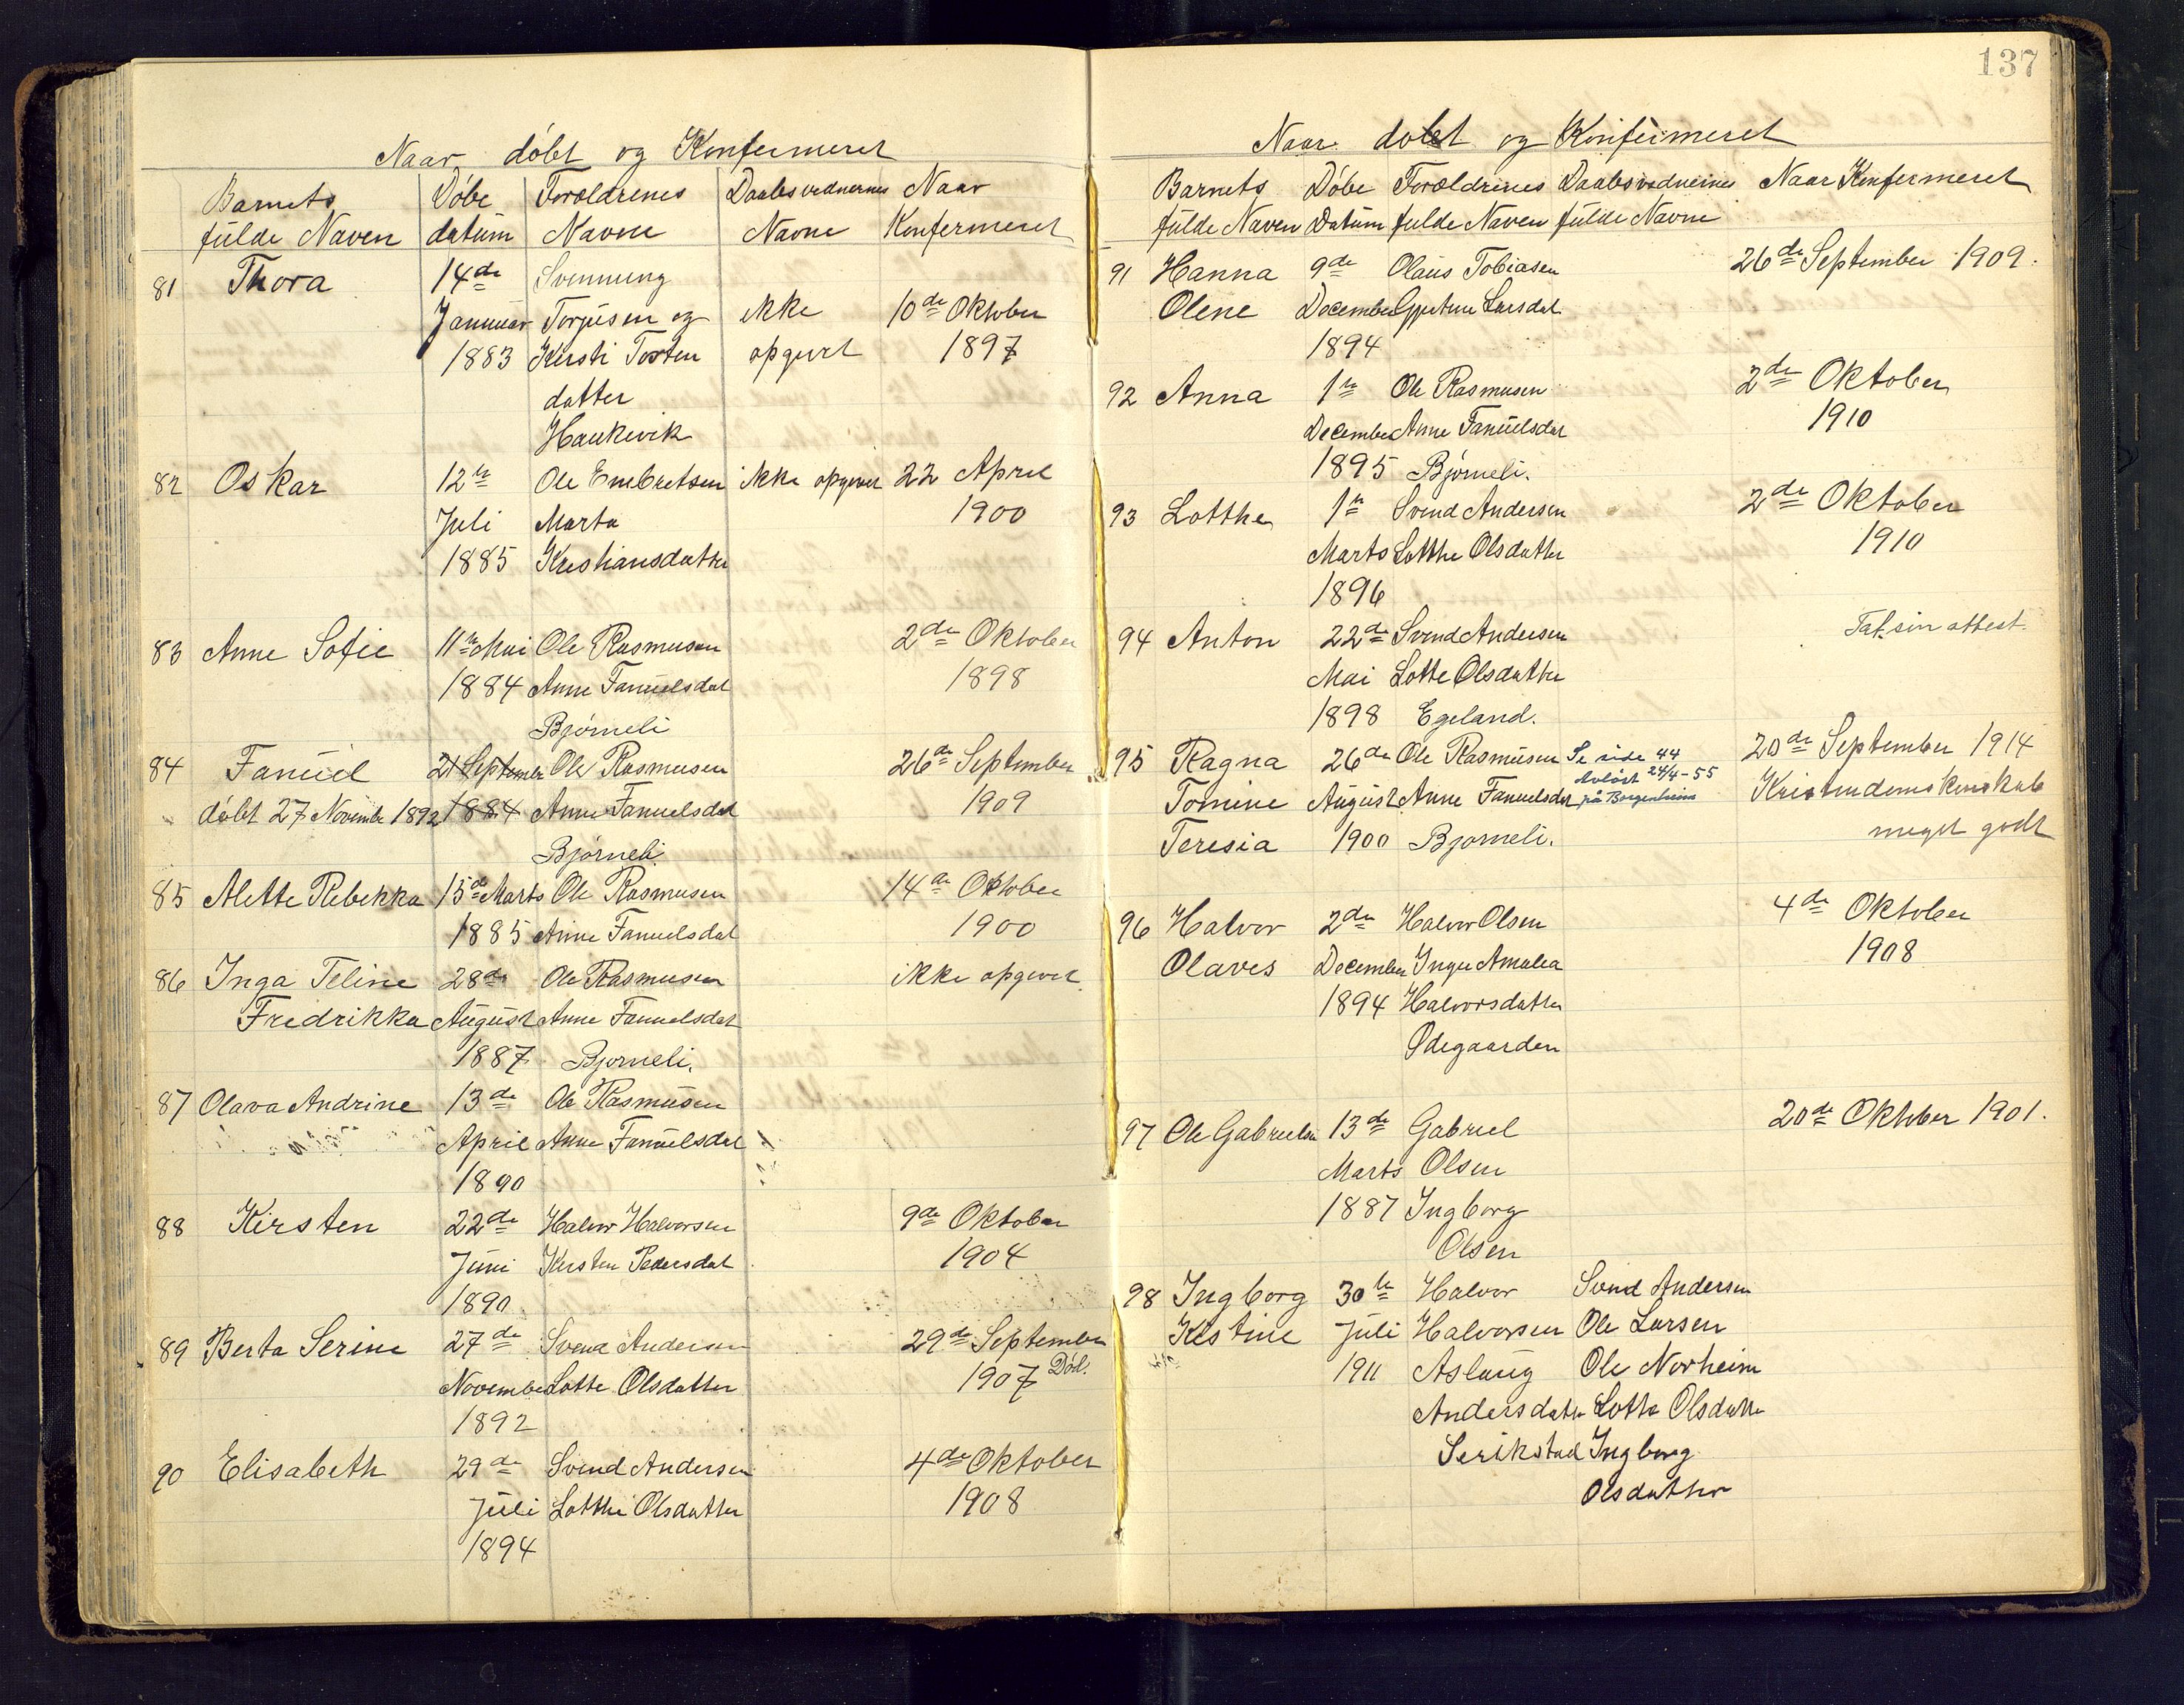 Naar døbt og Konfermeret
Barnets fulde Naven | Døbe datum | Forældrenes Navne | Daabsvednernes Navne | Naar Konfermeret
81 Thora | 14de Januar 1883 | Svennung Torjusen og Kersti Tosten datter Haukivik | ikke opgivet | 10de Oktober 1897
82 Oskar | 12te Juli 1885 | Ole Embretsen Marta Kristiansdatter | ikke opgivet | 22 April 1900
83 Anne Sofie | 11te Mai 1884 | Ole Rasmusen Anne Fanuelsdat Bjørneli | 2de Oktober 1898
84 Fanuel døbt 27 November 1892 | 21 September 1884 | Ole Rasmusen Anne Fanuelsdat Bjørneli | 26de September 1909
85 Alette Rebekka | 15de Marts 1885 | Ole Rasmusen Anne Fanuelsdat | 14de Oktober 1900
86 Inga Teline Fredrikka | 28de August 1887 | Ole Rasmusen Anne Fanuelsdat Bjorneli. | ikke opgivet
87 Olava Andrine | 13de April 1890 | Ole Rasmusen Anne Fanuelsdat
88 Kirsten | 22de Juni 1890 | Halvor Halvorsen Kersten Pedersdat | 9de Oktober 1904
89 Berta Serine | 27de November 1892 | Svend Andersen Lotte Olsdatter | 29de September 1907 Død.
90 Elisabeth | 29de Juli 1894 | Svend Andersen Lotthe Olsdatter | 4de Oktober 1908
137
Naar dobt og Konfirmeret
Barnets fulde Naven | Døbe Datum | Forældrenes fulde Naven | Daabsvednernes fulde Navne | Naar Konfermeret
91 Hanna Olene | 9de December 1894 | Olaus Tobiasen Larsdat | 26de September 1909.
92 Anna | 1te December 1895 | Ole Rasmusen Anne Fanuelsdat Bjørneli. | 2de Oktober 1910
93 Lotthe | 1te Marts 1896 | Svend Andersen Lotthe Olsdatter | 2de Oktober 1910
94 Anton | 22de Mai 1898 | Svend Andersen Lotte Olsdatter Egeland. | Tat sin attest.
95 Ragna Tomine Teresia | 26de August 1900 | Ole Rasmusen Anne Fanuelsdat Bjorneli. | Se side 44 Avløst 24/4-55 på Borgenheim | 20de September 1914 Kristendomskunskab meget godt
96 Halvor Olaves | 2de December 1894 | Halvor Olsen Inger Amalia Halvorsdatter Ødegaarden | 4de Oktober 1908
97 Ole Gabrielsen | 13de Marts 1887 | Gabriel Olsen Ingborg Olsen | 20de Oktober 1901.
98 Ingborg Kestine | 30te Juli 1911 | Halvor Halvorsen Aslaug Andersdatter Serikstad | Svend Andersen Ole Larsen Ole Norheim Lotte Olsdatter Ingborg Olsdatter